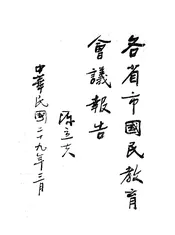 各省市國民教育
會議報告
陳立夫
中華民國二十九年三月